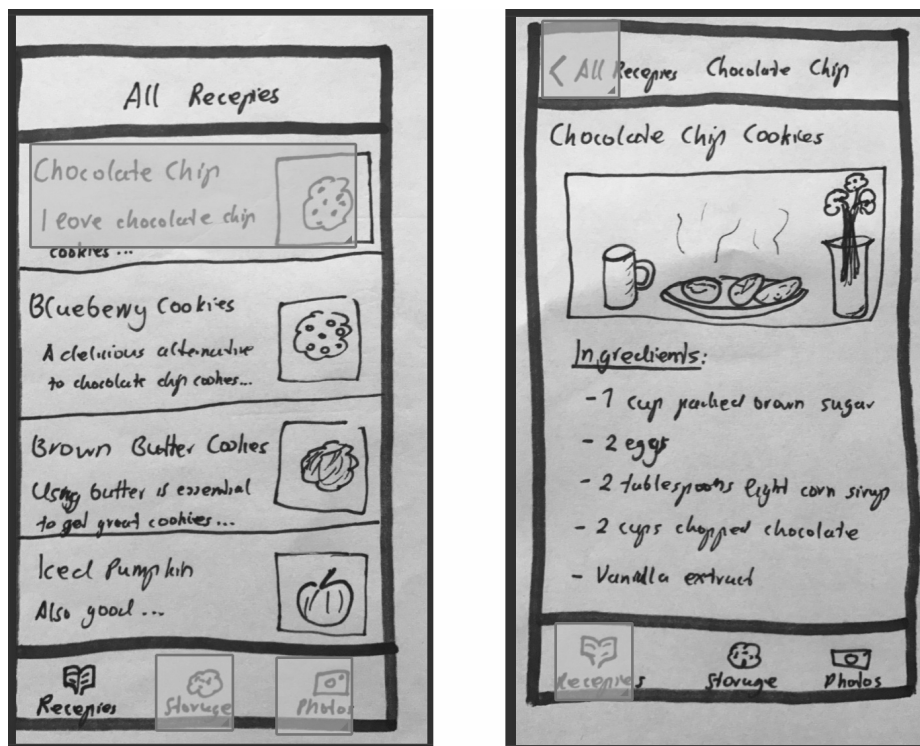 All Recepies
Chocolate Chip
I love chocolate chip
cookies ...
Blueberry Cookies
A delicious alternative
to chocolate chip cookies...
Brown Butter Cookies
Using butter is essential
to get great cookies...
Iced Pumpkin
Also good ...
Recepies Storage Photos
< All Recepies Chocolate Chip
Chocolate Chip Cookies
Ingredients:
- 1 cup packed brown sugar
- 2 eggs
- 2 tablespoons light corn sirup
- 2 cups chopped chocolate
- Vanilla extract
Recepies Storage Photos